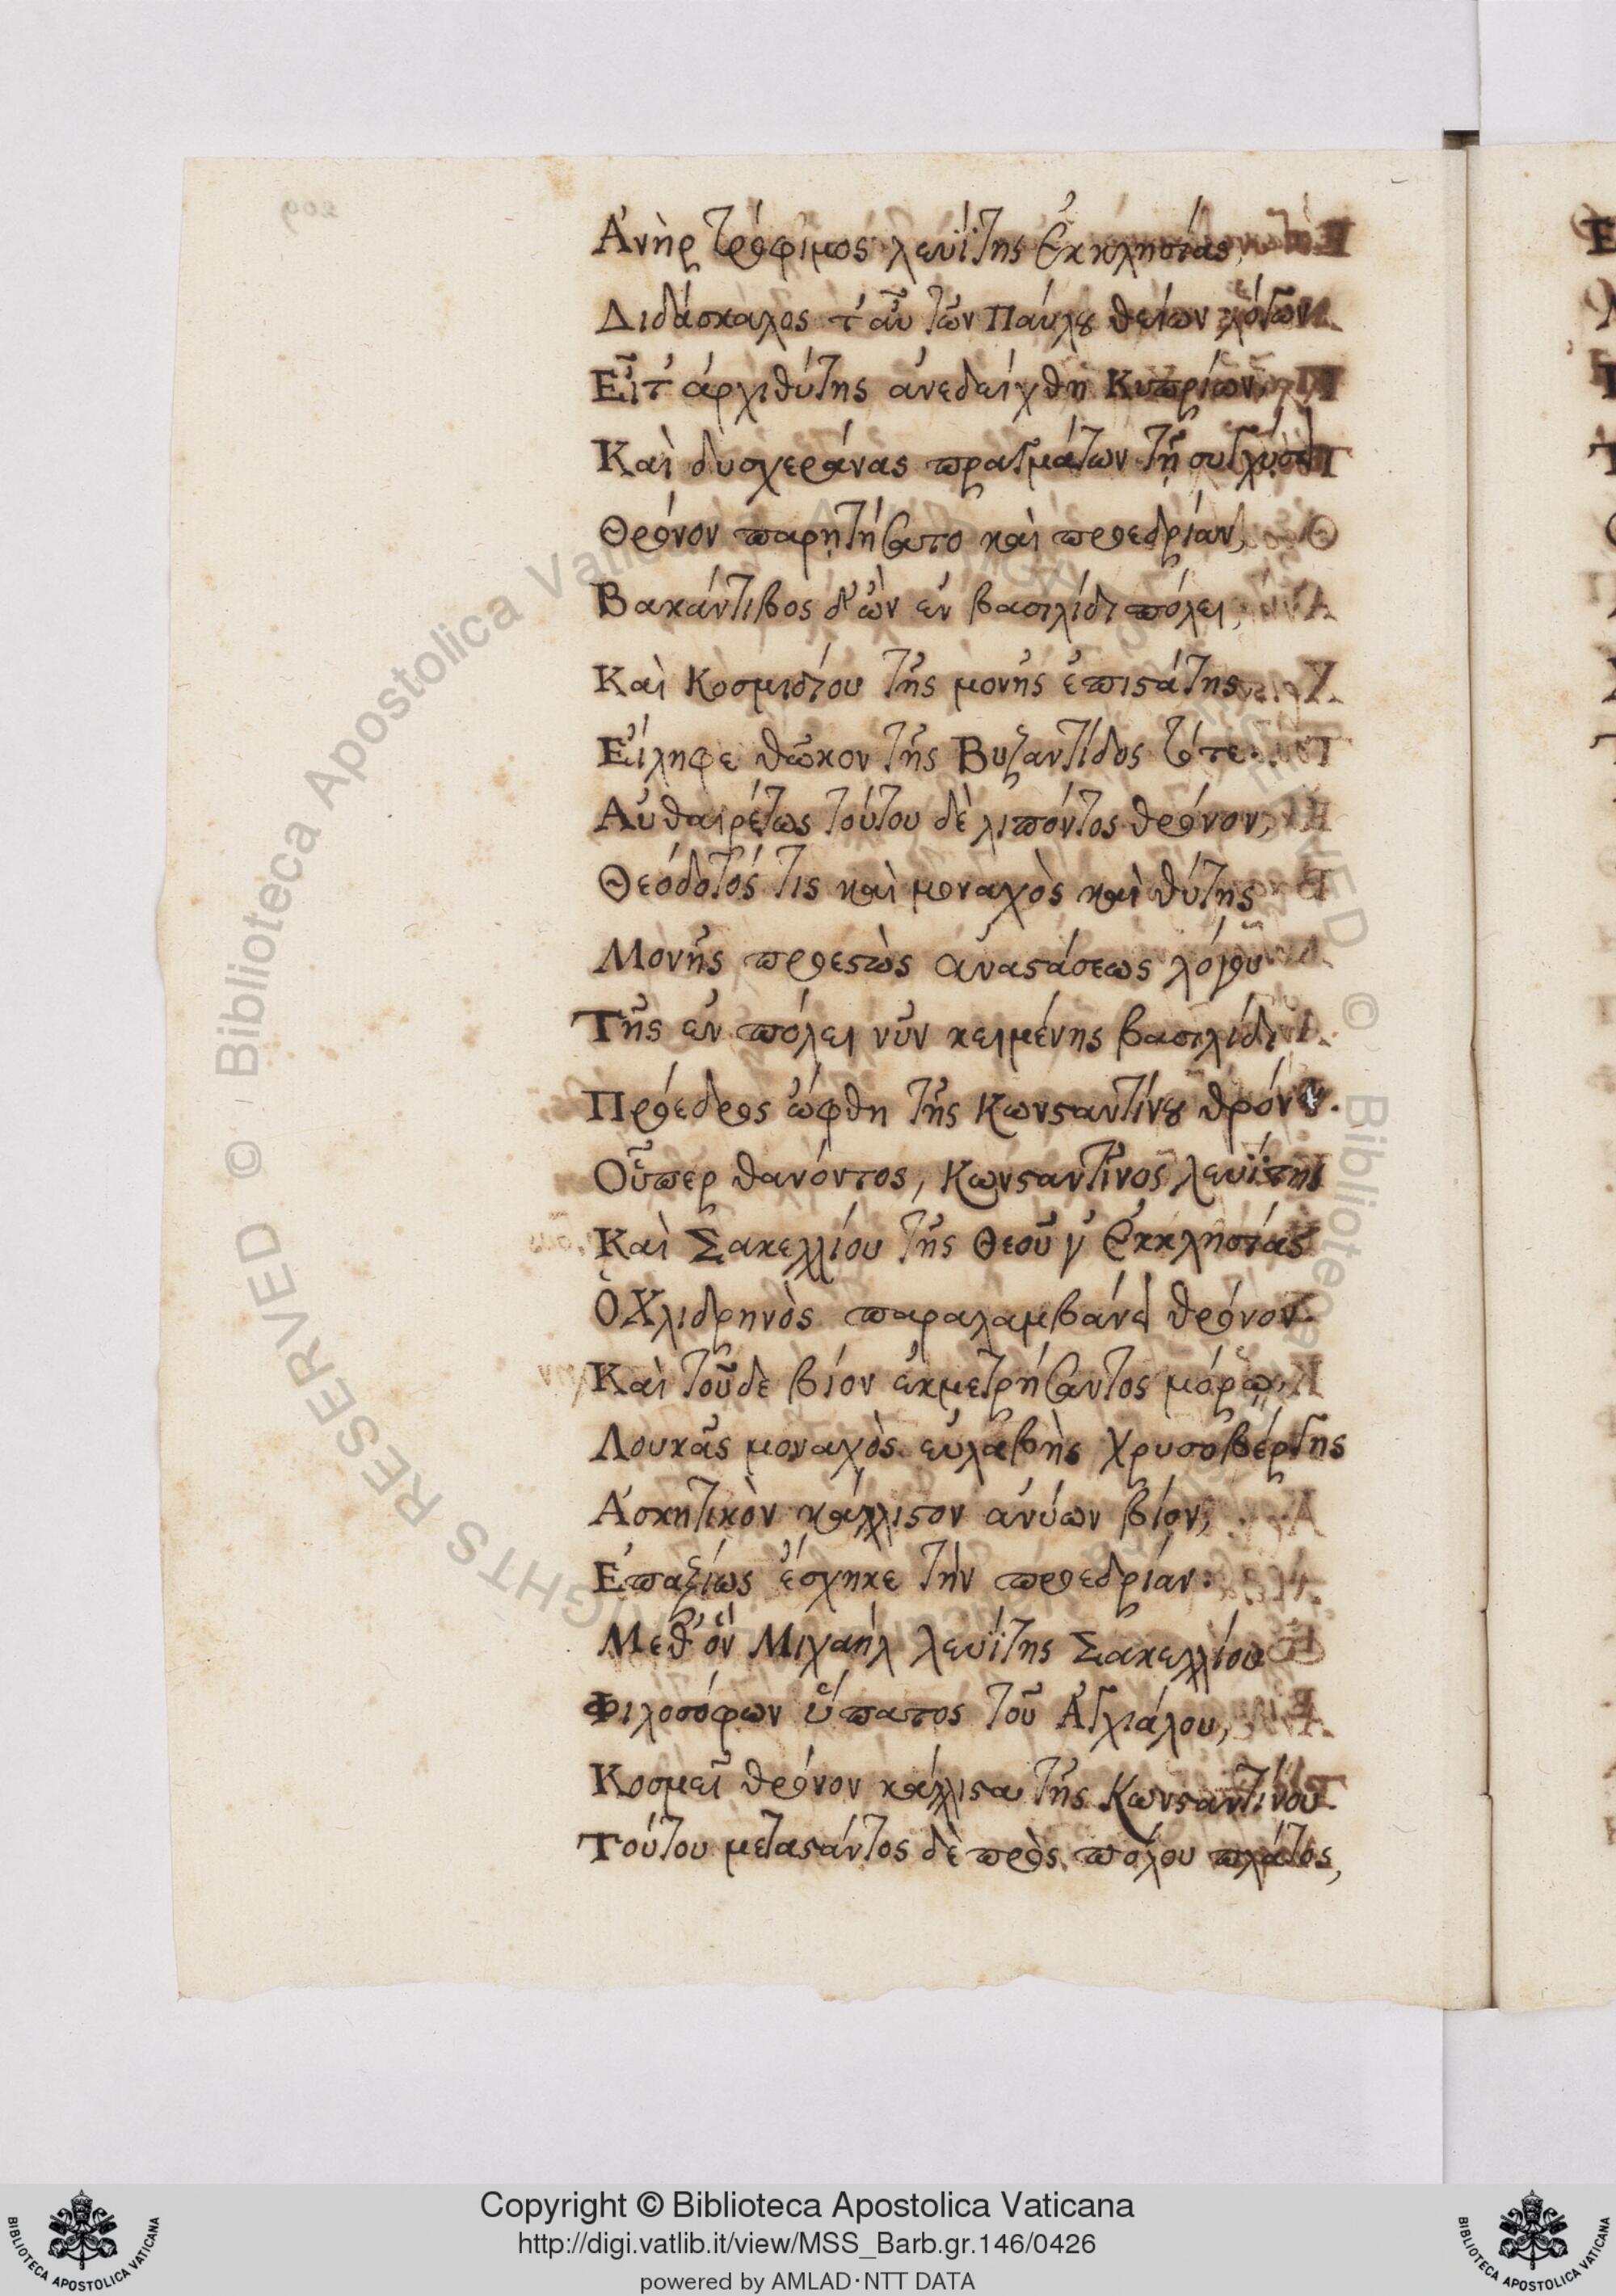 Ἀνὴρ τρόφιμος λευΐτης Ἐκκλησίας,
Διδάσκαλος τ' αὖ τῶν Παύλου θείων λόγων
Εἶτ' ἀρχιθύτης ἀνεδείχθη Κυπρίων,
Καὶ δυσχεράνας πραγμάτων τῇ συγχύσει
Θρόνον παρῃτήσατο καὶ προεδρίαν,
Βακάντιβος δ' ὢν ἐν βασιλίδι πόλει,
Καὶ Κοσμιδίου τῆς μονῆς ἐπιστάτης
Εἴληφε θῶκον τῆς Βυζαντίδος τότε.
Αὐθαιρέτως τούτου δὲ λιπόντος θρόνον,
Θεόδοτός τις καὶ μοναχὸς καὶ θύτης
Μονῆς προεστὼς ἀναστάσεως λόγου
Τῆς ἐν πόλει νῦν κειμένης βασιλίδι
Πρόεδρος ὤφθη τῆς Κωνσταντίνου θρόνου.
Οὗπερ θανόντος, Κωνσταντῖνος λευΐτης
Καὶ Σακελλίου τῆς Θεοῦ γ' Ἐκκλησίας
Ὁ Χλιδρηνὸς παραλαμβάνει θρόνον.
Καὶ τοῦδε βίον ἐκμετρήσαντος μόρῳ,
Λουκᾶς μοναχὸς εὐλαβὴς Χρυσοβέργης
Ἀσκητικὸν κάλλιστον ἀνύων βίον,
Ἐπαξίως ἔσχηκε τὴν προεδρίαν.
Μεθ' ὃν Μιχαὴλ λευΐτης Σακελλίου
Φιλοσόφων ὕπατος τοῦ Ἀγχιάλου,
Κοσμεῖ θρόνον κάλλιστα τῆς Κωνσταντίνου
Τούτου μεταστάντος δὲ πρὸς πόλου πλάτος,
Copyright © Biblioteca Apostolica Vaticana
http://digi.vatlib.it/view/MSS_Barb.gr.146/0426
powered by AMLAD·NTT DATA